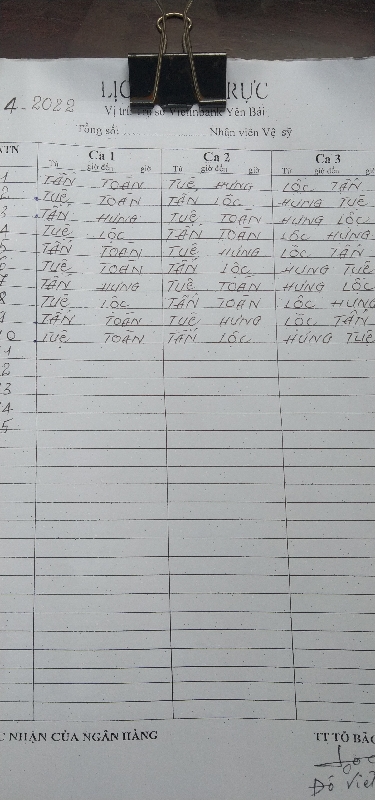 LỊC TRỰC
4-2022
Vị trí: Trụ sở Vietinbank Yên Bái
Tổng số: ........ Nhân viên Vệ sỹ
Ca 1 Ca 2 Ca 3
Từ giờ đến giờ Từ giờ đến giờ Từ giờ đến gi
1 TẤN TOÀN TUỆ HƯNG LỘC TẤN
2 TUỆ TOÀN TẤN LỘC HƯNG TUỆ
3 TẤN HƯNG TUỆ TOÀN HƯNG LỘC
4 TUỆ LỘC TẤN TOÀN LỘC HƯNG
5 TẤN TOÀN TUỆ HƯNG LỘC TẤN
6 TUỆ TOÀN TẤN LỘC HƯNG TUỆ
7 TẤN HƯNG TUỆ TOÀN HƯNG LỘC
8 TUỆ LỘC TẤN TOÀN LỘC HƯNG
9 TẤN TOÀN TUỆ HƯNG LỘC TẤN
10 TUỆ TOÀN TẤN LỘC HƯNG TUỆ
11
2
3
4
5
NHẬN CỦA NGÂN HÀNG TT TỔ BẢO
Đỗ Việt